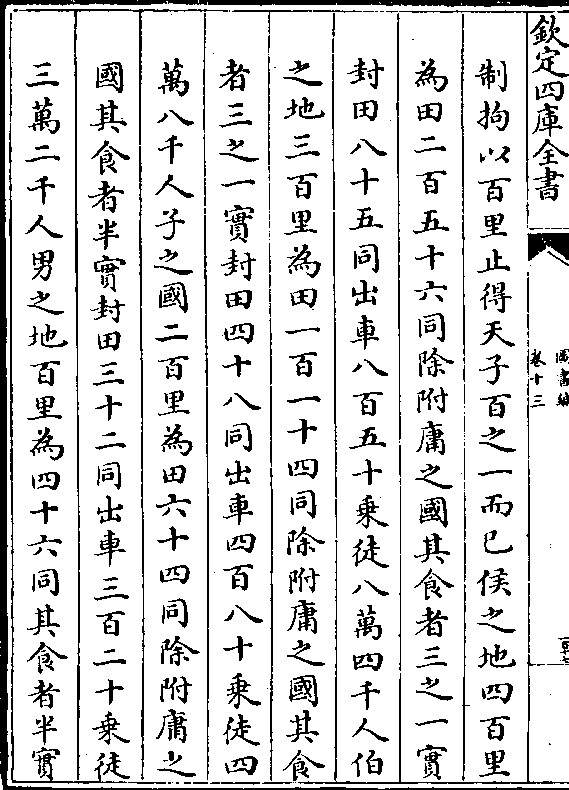 欽定四庫全書
圖書編
卷十三
制拘以百里止得天子百之一而已侯之地四百里
為田二百五十六同除附庸之國其食者三之一實
封田八十五同出車八百五十乗徒八萬四千人伯
之地三百里為田一百一十四同除附庸之國其食
者三之一實封田四十八同出車四百八十乗徒四
萬八千人子之國二百里為田六十四同除附庸之
國其食者半實封田三十二同出車三百二十乗徒
三萬二千人男之地百里為四十六同其食者半實